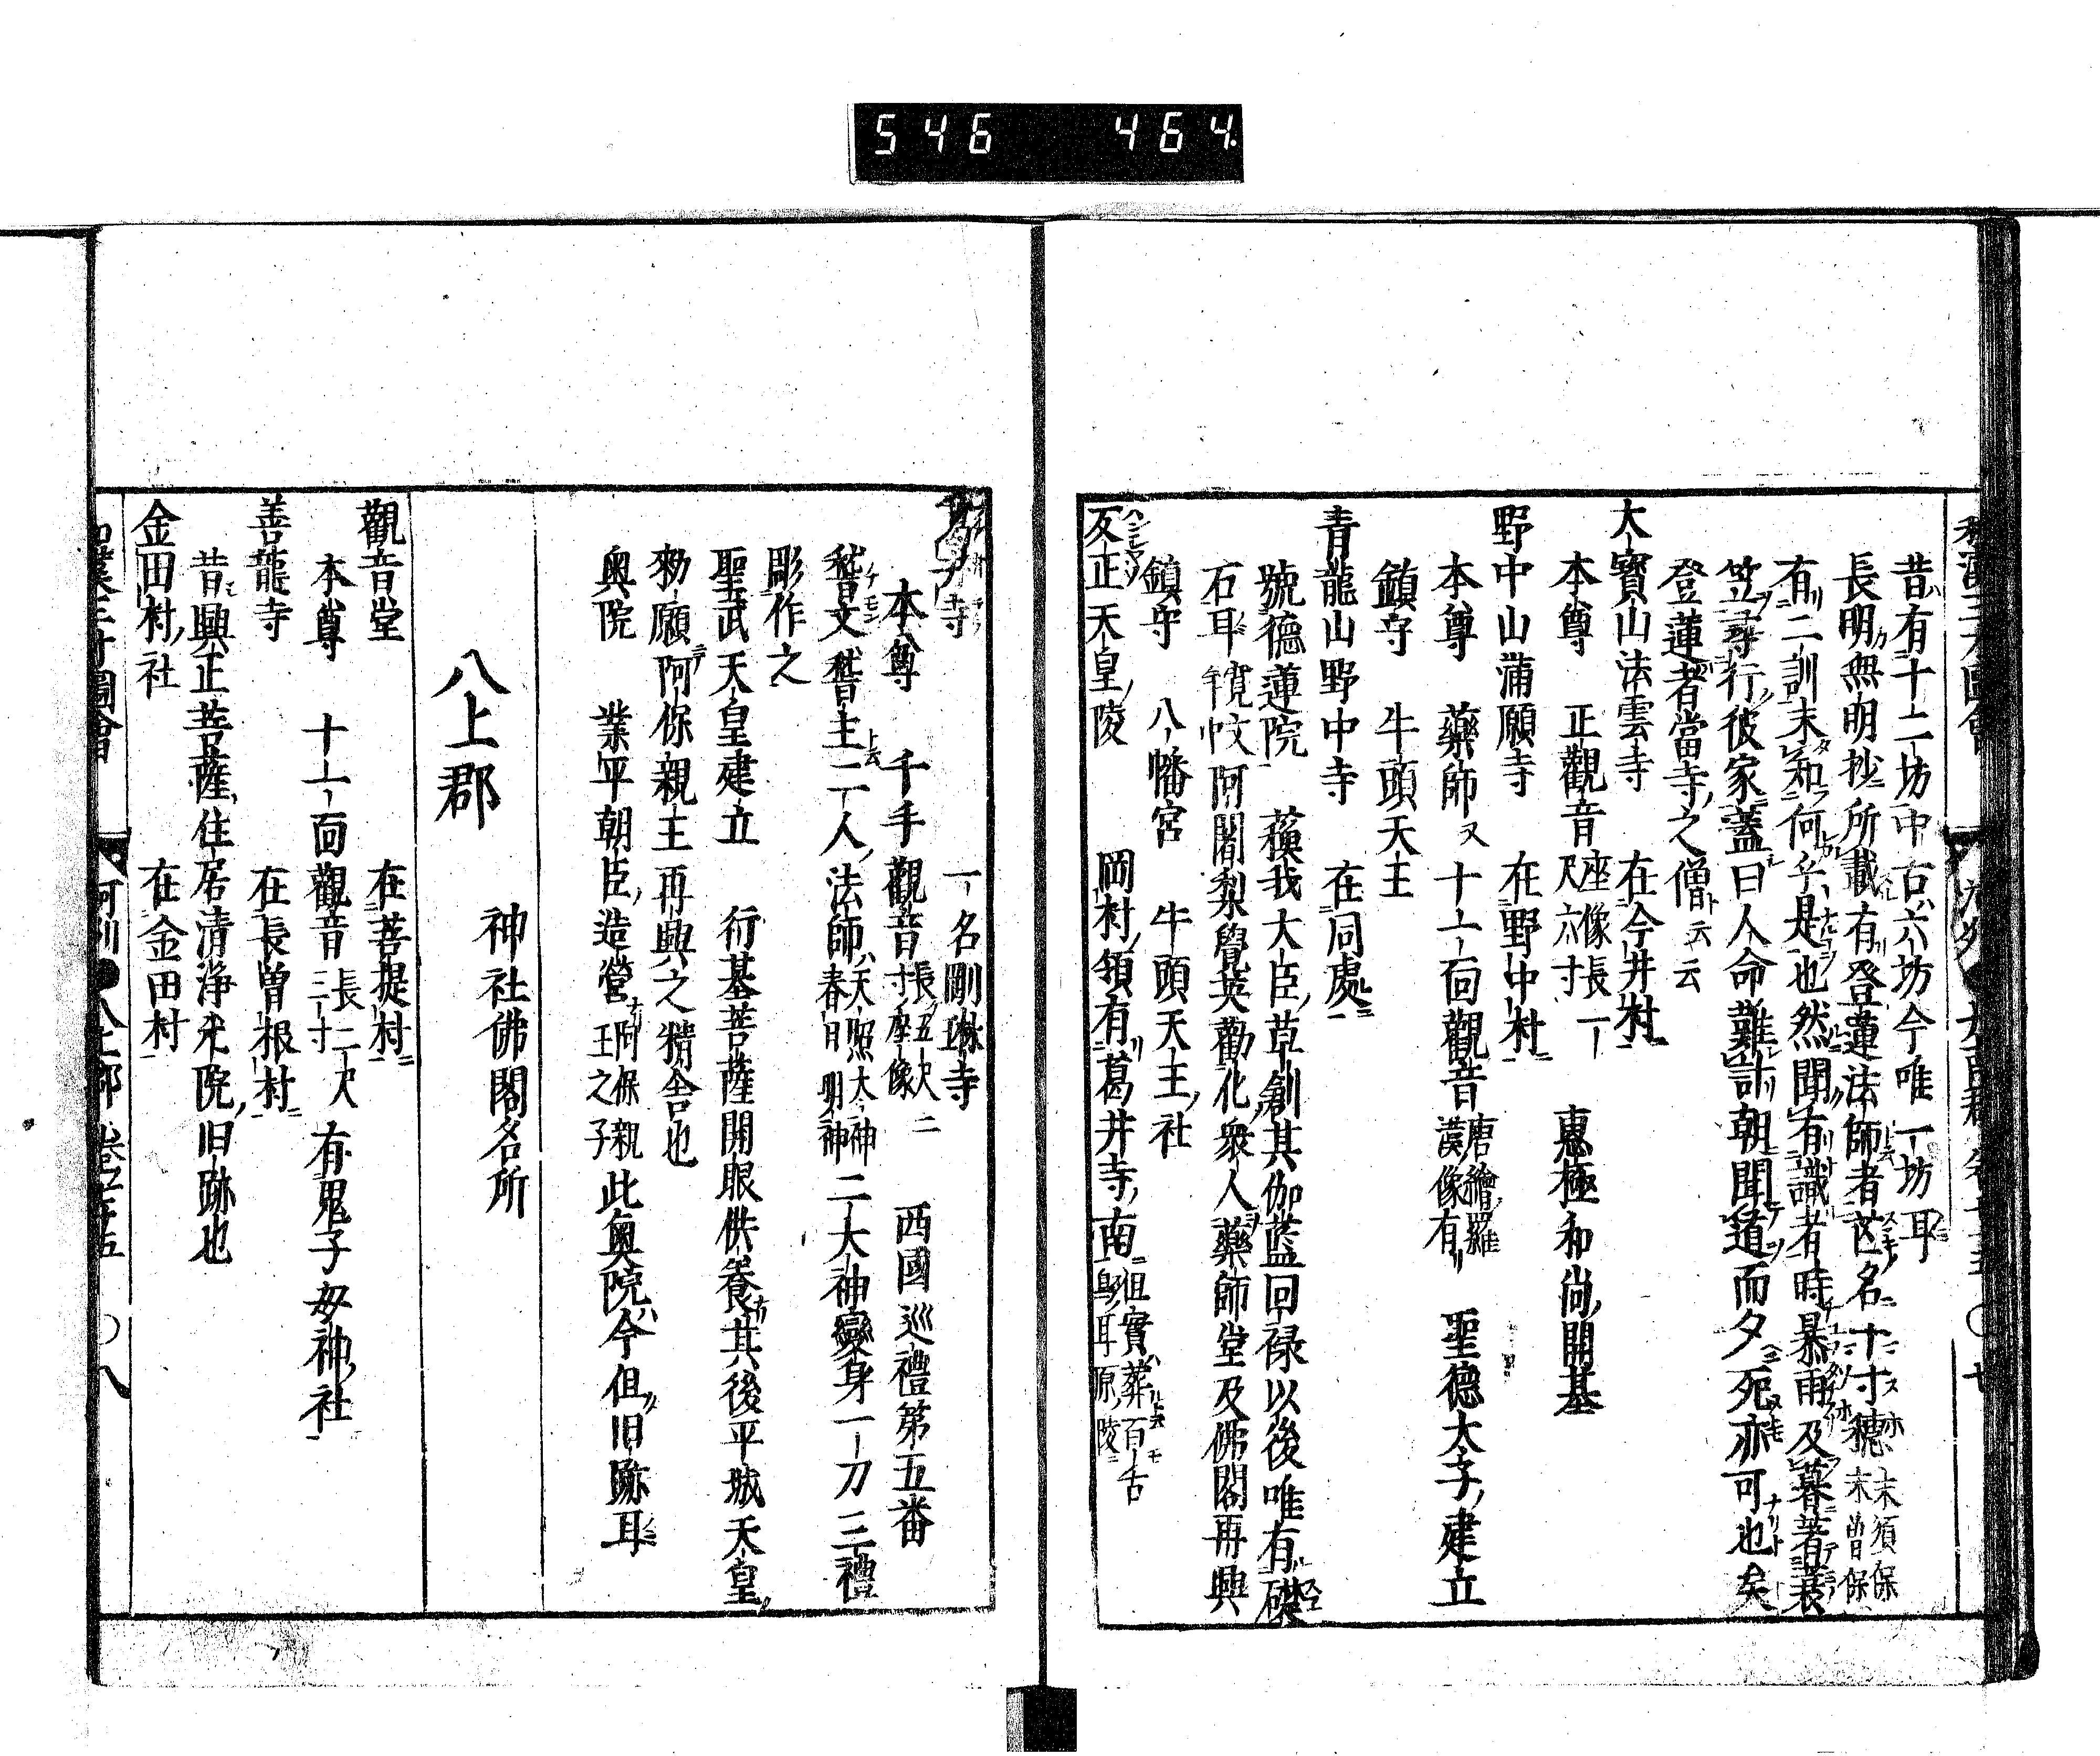 546 464
昔有十二坊中古六坊今唯一坊耳
長明無明抄所載有登蓮法師者芒名十寸穗 末須保 末曽保
有二訓末知何乎是也然聞有識者時暴雨及暮著蓑
笠尋行彼家蓋曰人命難計朝聞道而夕死亦可也矣
登蓮者當寺之僧云云
大寶山法雲寺 在今井村
本尊 正觀音 座像長一尺六寸 惠極和尚開基
野中山蒲願寺 在野中村
本尊 藥師 又十一面觀音 唐繪羅漢像有 聖德太子建立
鎮守 牛頭天王
青龍山野中寺 在同處
號德蓮院 蘓我大臣草創其伽藍回禄以後唯有礎
石耳 寛文年中 阿闍梨覺英勸化衆人藥師堂及佛閣再興
鎮守 八幡宮 牛頭天王社
反正天皇陵 岡村領有葛井寺南 但實葬百舌鳥耳原陵
一名剛琳寺
本尊 千手觀音 長五尺二寸座像 西國巡禮第五番
稽文稽主二人法師 天照太神 春日明神 二大神變身一刀三禮
彫作之
聖武天皇建立 行基菩薩開眼供養其後平城天皇
勅願阿保親王再興之精舍也
奥院 業平朝臣造營 阿保親王之子 此奥院今但旧跡耳
八上郡 神社佛閣名所
觀音堂 在菩提村
本尊 十一面觀音 長二尺三寸 有鬼子母神社
善龍寺 在長曽根村
昔興正菩薩住居清浄光院旧跡也
金田村社 在金田村
和漢三才圖會 河刕 八上郡 卷七十五 〇八